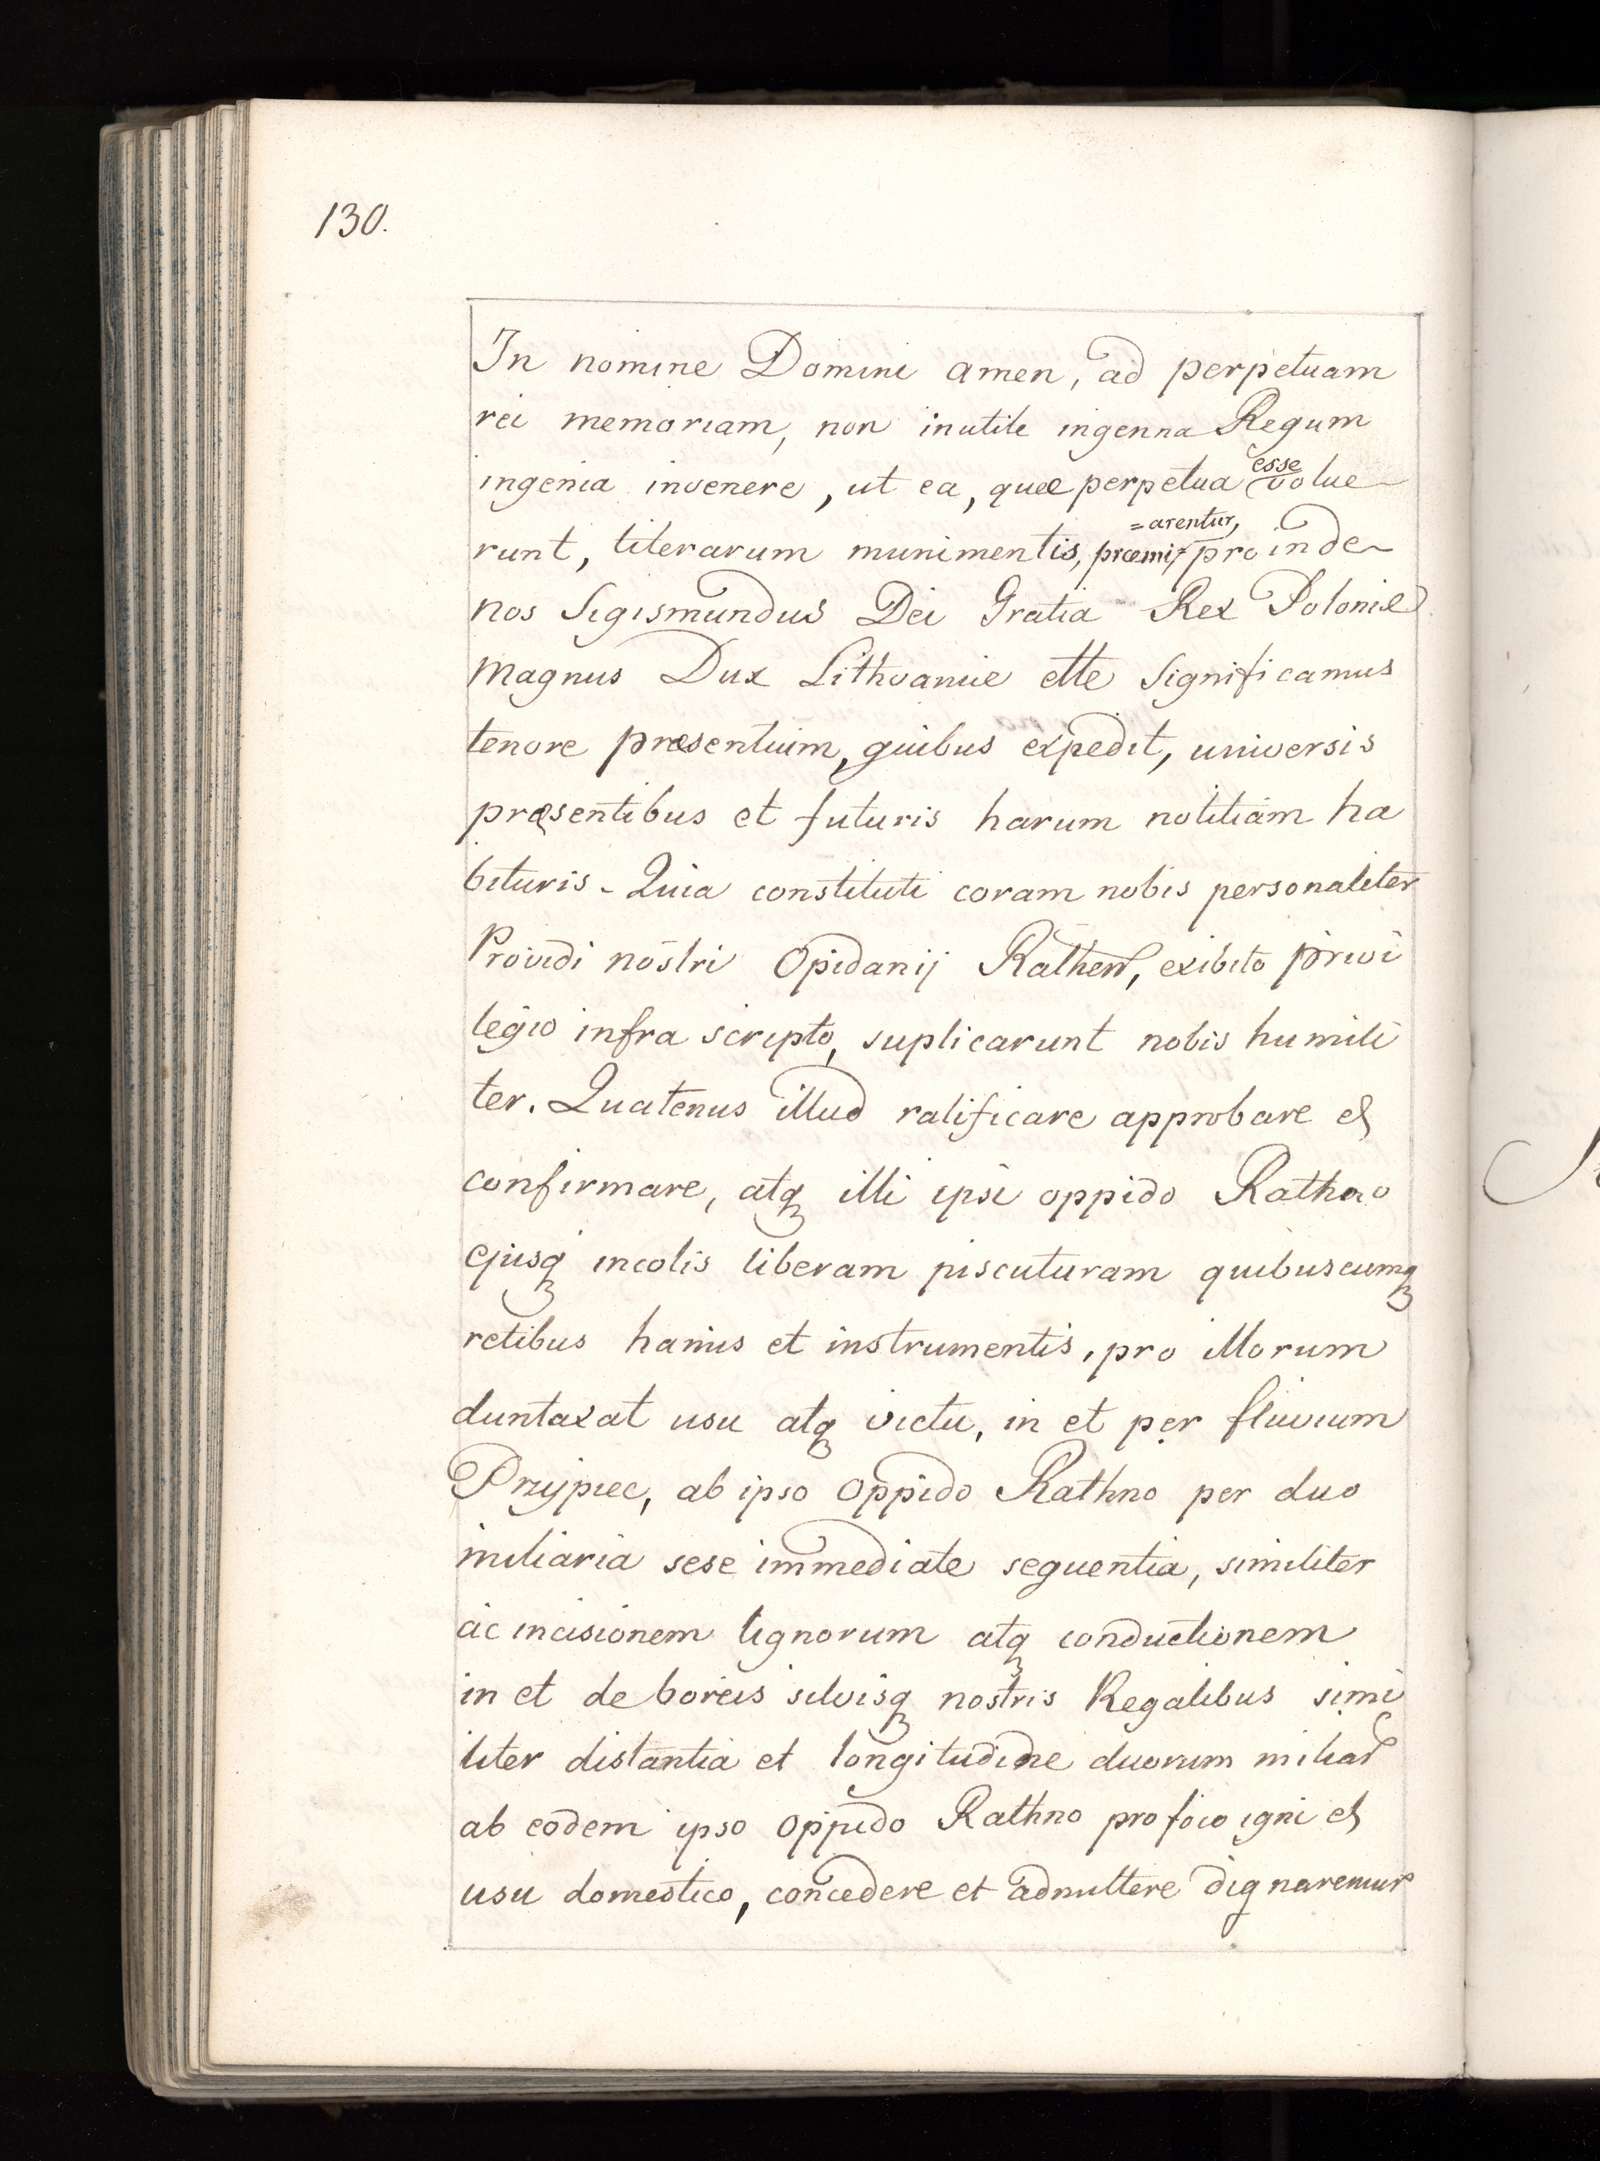 130.
In nomine Domini amen, ad perpetuam
rei memoriam, non inutile ingenna Regum
ingenia invenere, ut ea, quæ perpetua esse volue
runt, literarum munimentis, præmi=arentur, proinde
nos Sigismundus Dei Gratia Rex Poloniæ
Magnus Dux Lithvaniæ ette Significamus
tenore præsentium, quibus expedit, universis
præsentibus et futuris harum notitiam ha
bituris - Quia constituti coram nobis personaliter
Providi nostri Opidanij Rathen, exibito privi
legio infra scripto, suplicarunt nobis humili
ter. Quatenus illud ratificare approbare et
confirmare, atq illi ipsi oppido Rathno
ejusq incolis liberam piscuturam quibuscumq
retibus hamis et instrumentis, pro illorum
duntaxat usu atq victu, in et per fluvium
Przypiec, ab ipso oppido Rathno per duo
miliaria sese immediate sequentia, similiter
ac incisionem lignorum atq conductionem
in et de boreis silvisq nostris Regalibus simi
liter distantia et longitudine duorum miliar
ab eodem ipso oppido Rathno pro foco igni et
usu domestico, concedere et admittere dignaremur